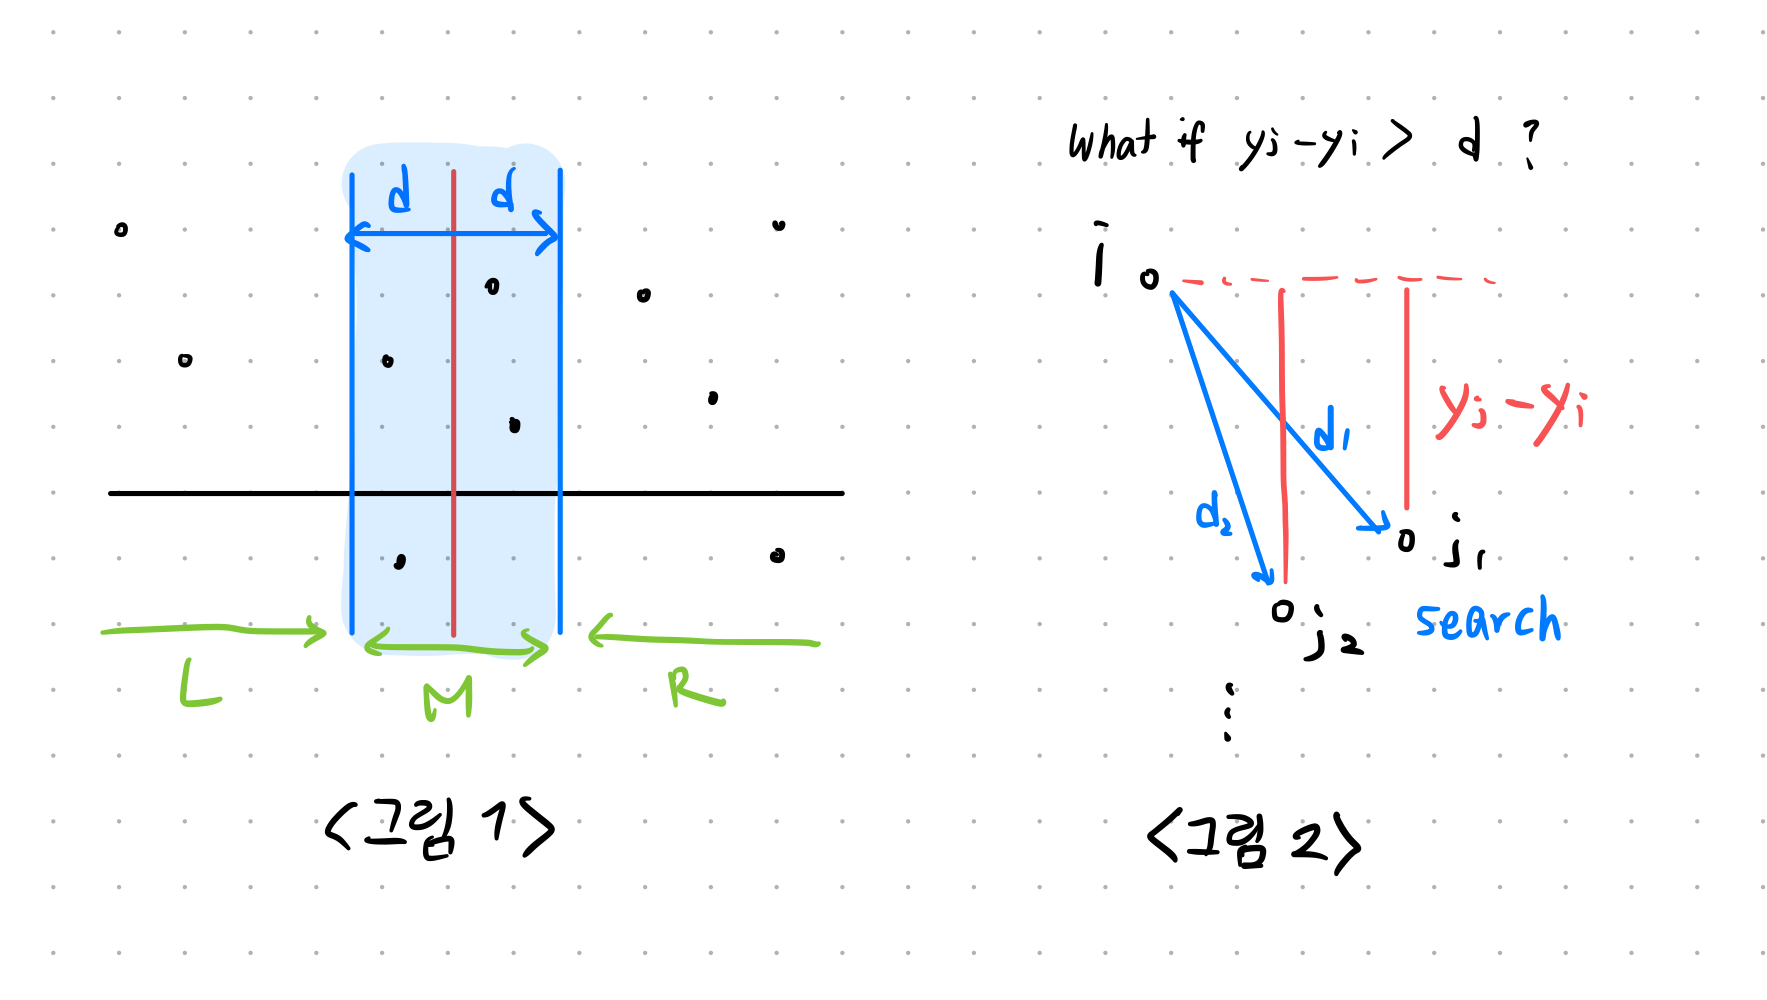 d d
L M R
<그림 1>
What if yj-yi > d ?
i
d1
yj-yi
d2
j1
j2
search
<그림 2>